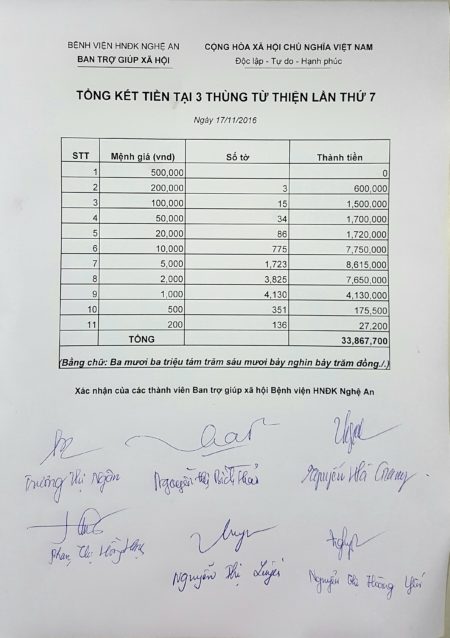 BỆNH VIỆN HNĐK NGHỆ AN
BAN TRỢ GIÚP XÃ HỘI
CỘNG HÒA XÃ HỘI CHỦ NGHĨA VIỆT NAM
Độc lập - Tự do - Hạnh phúc
TỔNG KẾT TIỀN TẠI 3 THÙNG TỪ THIỆN LẦN THỨ 7
Ngày 17/11/2016
STT Mệnh giá (vnd) Số tờ Thành tiền
1 500,000 0
2 200,000 3 600,000
3 100,000 15 1,500,000
4 50,000 34 1,700,000
5 20,000 86 1,720,000
6 10,000 775 7,750,000
7 5,000 1,723 8,615,000
8 2,000 3,825 7,650,000
9 1,000 4,130 4,130,000
10 500 351 175,500
11 200 136 27,200
TỔNG 33,867,700
(Bằng chữ: Ba mươi ba triệu tám trăm sáu mươi bảy nghìn bảy trăm đồng./.)
Xác nhận của các thành viên Ban trợ giúp xã hội Bệnh viện HNĐK Nghệ An
Trương Thị Ngân
Nguyễn Thị Bích
Nguyễn
Phan Thị
Nguyễn Thị
Nguyễn Thị Hoàng Yến